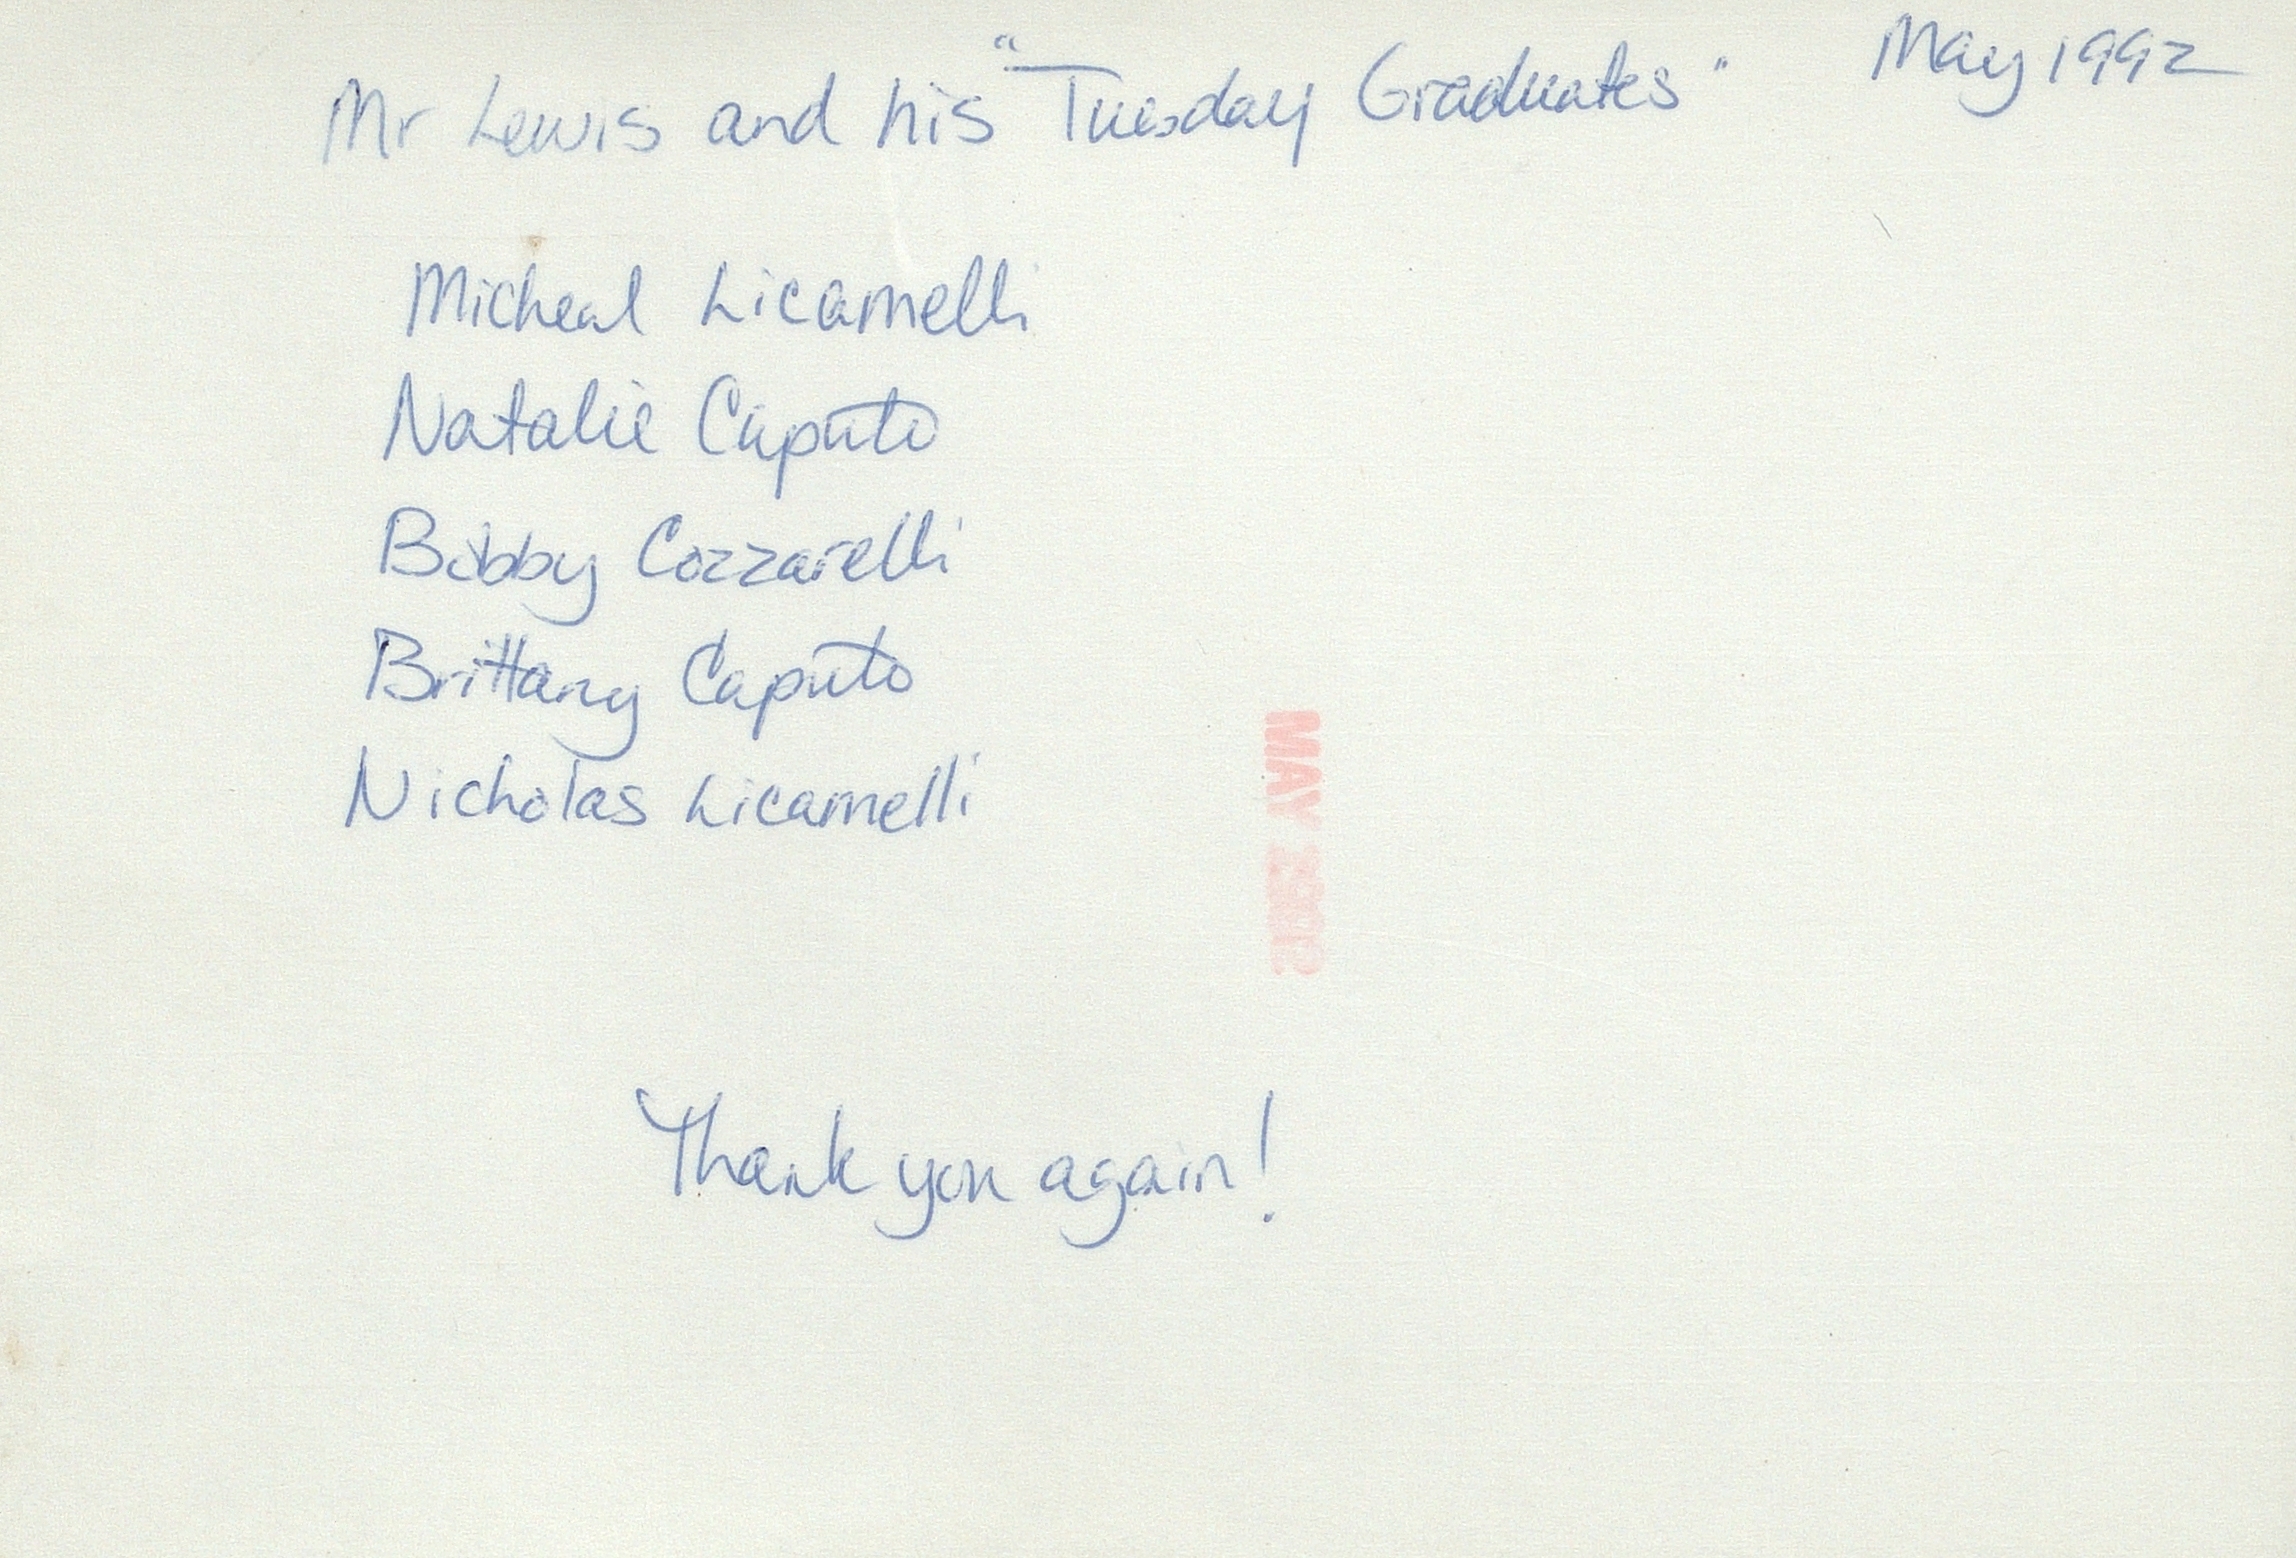 Mr Lewis and his "Tuesday Graduates" May 1992
Micheal Licamelli
Natalie Caputo
Bobby Cozzarelli
Brittany Caputo
Nicholas Licamelli
MAY 1992
Thank you again!